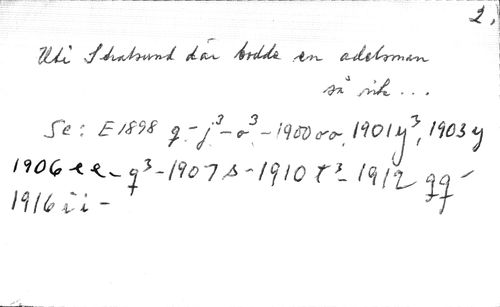 2.
Uti Stralsund där bodde en adelsman
så rik...
Se: E1898 q - j³ - o³ - 1900 oo, 1901 y³, 1903 y
1906 e e - q³ - 1907 s - 1910 t³ - 1912 qq -
1916 i i -